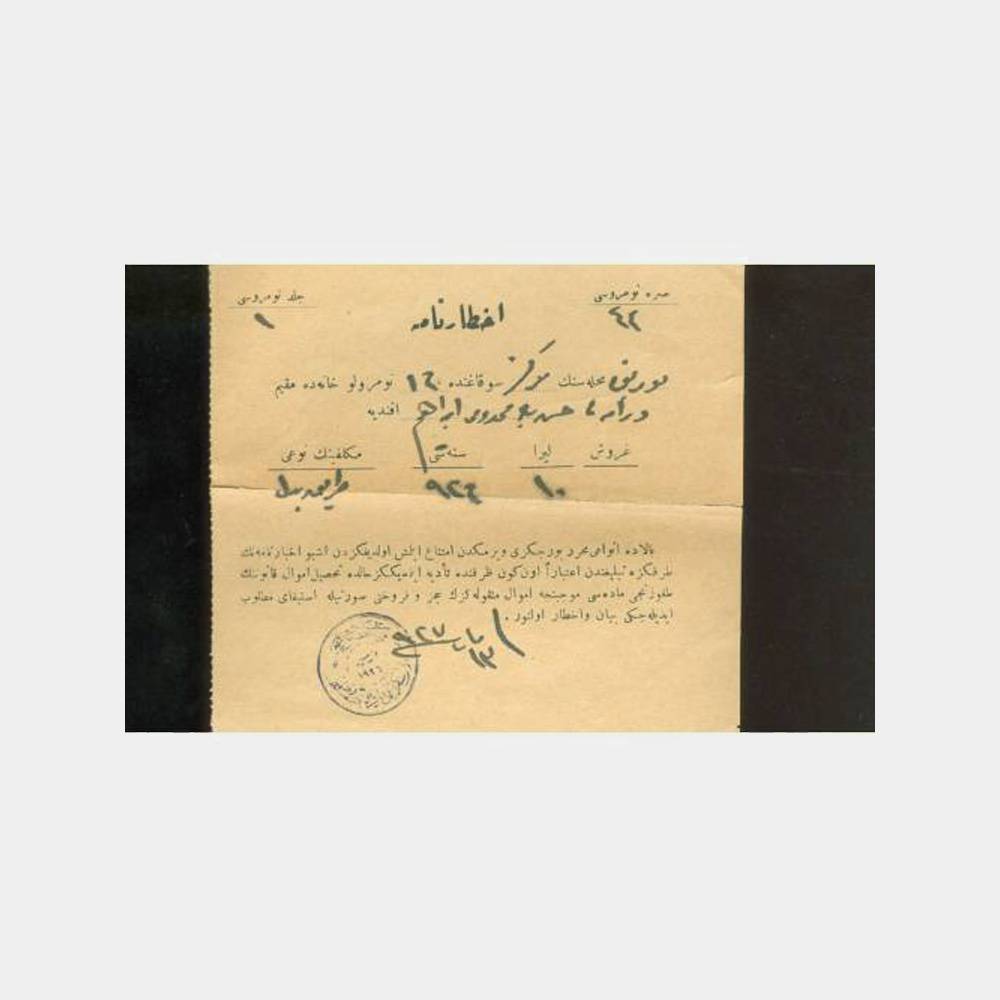 صره نومروسی
جلد نومروسی
٤٢
١
اخطارنامه
محله‌سنك مركز سوقاغنده ١٢ نومرولو خانه‌ده مقیم
ابراهیم افندیه
غروش لیرا سنه‌سی مكلفیتك نوعی
١٠ ٩٢٤ بدل
بالاده انواعی محرر بورجكزی ویرمكدن امتناع ایلمش اولدیغكزدن اشبو اخبارنامه‌نك
طرفكزه تبلیغندن اعتباراً اون كون ظرفنده تأدیه ایتمدیككز حالده تحصیل اموال قانوننك
طقوزنجی ماده‌سی موجبنجه اموال منقوله‌كزك حجز و فروختی صورتیله استیفای مطلوب
ایدیله‌جكی بیان واخطار اولنور .
١٣ مارت ٩٢٧